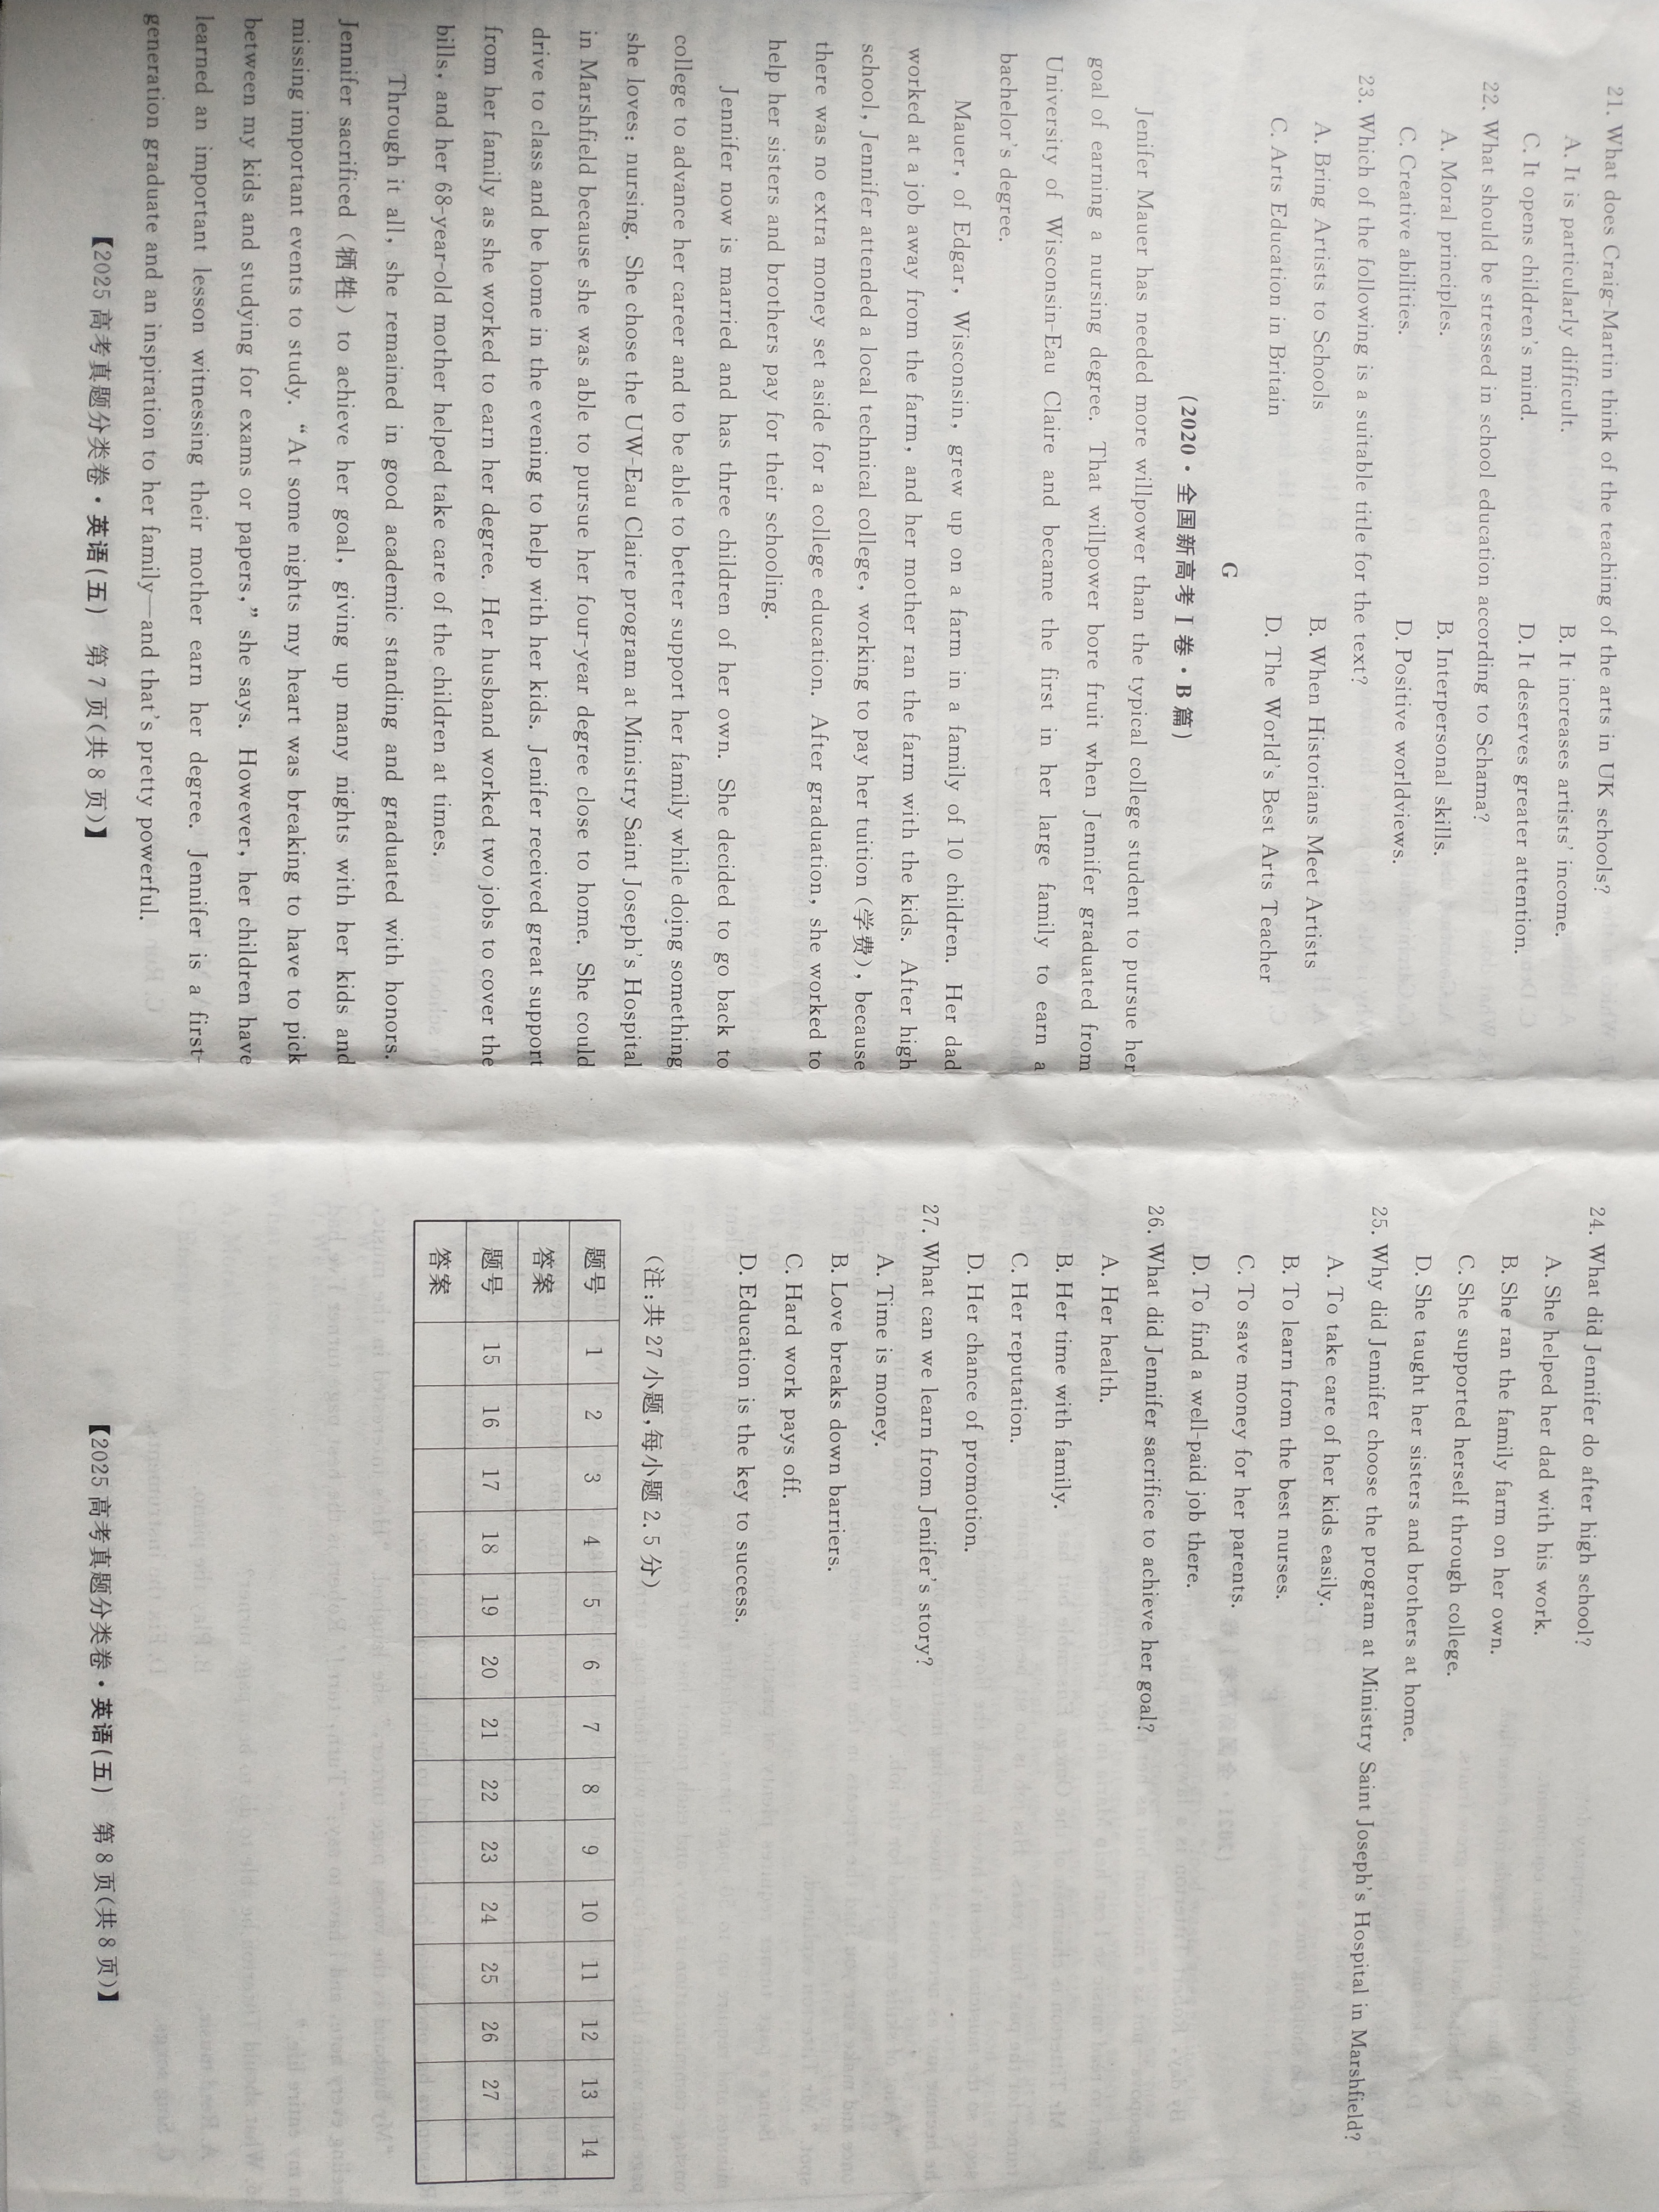 21. What does Craig-Martin think of the teaching of the arts in UK schools?
A. It is particularly difficult. B. It increases artists' income.
C. It opens children's mind. D. It deserves greater attention.
22. What should be stressed in school education according to Schama?
A. Moral principles. B. Interpersonal skills.
C. Creative abilities. D. Positive worldviews.
23. Which of the following is a suitable title for the text?
A. Bring Artists to Schools B. When Historians Meet Artists
C. Arts Education in Britain D. The World's Best Arts Teacher
G
(2020·全国新高考Ⅰ卷·B篇)
Jenifer Mauer has needed more willpower than the typical college student to pursue her
goal of earning a nursing degree. That willpower bore fruit when Jennifer graduated from
University of Wisconsin-Eau Claire and became the first in her large family to earn a
bachelor's degree.
Mauer, of Edgar, Wisconsin, grew up on a farm in a family of 10 children. Her dad
worked at a job away from the farm, and her mother ran the farm with the kids. After high
school, Jennifer attended a local technical college, working to pay her tuition (学费), because
there was no extra money set aside for a college education. After graduation, she worked to
help her sisters and brothers pay for their schooling.
Jennifer now is married and has three children of her own. She decided to go back to
college to advance her career and to be able to better support her family while doing something
she loves: nursing. She chose the UW-Eau Claire program at Ministry Saint Joseph's Hospital
in Marshfield because she was able to pursue her four-year degree close to home. She could
drive to class and be home in the evening to help with her kids. Jenifer received great support
from her family as she worked to earn her degree. Her husband worked two jobs to cover the
bills, and her 68-year-old mother helped take care of the children at times.
Through it all, she remained in good academic standing and graduated with honors.
Jennifer sacrificed (牺牲) to achieve her goal, giving up many nights with her kids and
missing important events to study. “At some nights my heart was breaking to have to pick
between my kids and studying for exams or papers,” she says. However, her children have
learned an important lesson witnessing their mother earn her degree. Jennifer is a first-
generation graduate and an inspiration to her family—and that's pretty powerful.
【2025高考真题分类卷·英语(五) 第7页(共8页)】
24. What did Jennifer do after high school?
A. She helped her dad with his work.
B. She ran the family farm on her own.
C. She supported herself through college.
D. She taught her sisters and brothers at home.
25. Why did Jennifer choose the program at Ministry Saint Joseph's Hospital in Marshfield?
A. To take care of her kids easily.
B. To learn from the best nurses.
C. To save money for her parents.
D. To find a well-paid job there.
26. What did Jennifer sacrifice to achieve her goal?
A. Her health.
B. Her time with family.
C. Her reputation.
D. Her chance of promotion.
27. What can we learn from Jenifer's story?
A. Time is money.
B. Love breaks down barriers.
C. Hard work pays off.
D. Education is the key to success.
(注:共27小题,每小题2.5分)
题号 1 2 3 4 5 6 7 8 9 10 11 12 13 14
答案
题号 15 16 17 18 19 20 21 22 23 24 25 26 27
答案
【2025高考真题分类卷·英语(五) 第8页(共8页)】